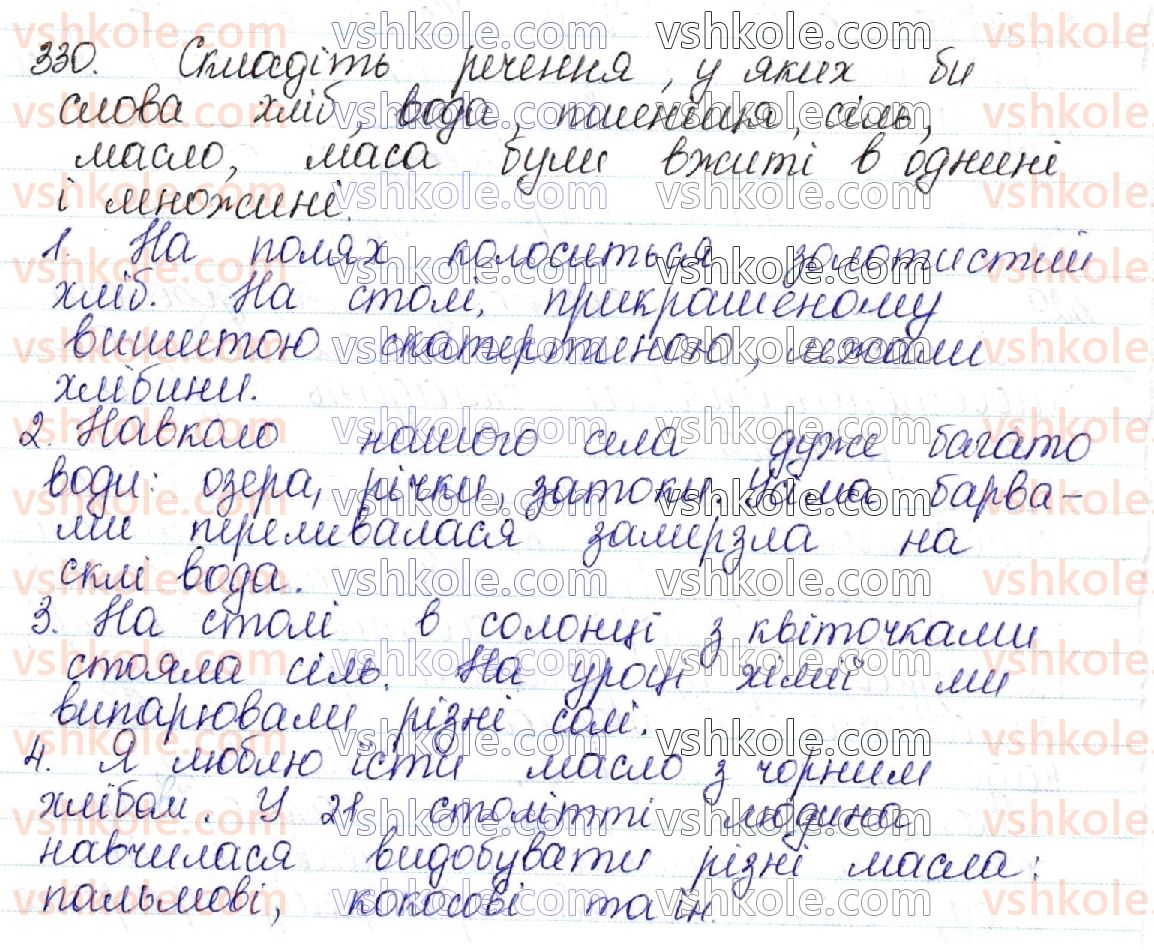 330. Складіть речення, у яких би
слова хліб, вода, пшениця, сіль,
масло, маса були вжиті в однині
і множині.
1. На полях колоситься золотистий
хліб. На столі, прикрашеному
вишитою скатертиною, лежали
хлібини.
2. Навколо нашого села дуже багато
води: озера, річки, затоки. Усіма барва-
ми переливалася замерзла на
склі вода.
3. На столі в солонці з квіточками
стояла сіль. На уроці хімії ми
випарювали різні солі.
4. Я люблю їсти масло з чорним
хлібом. У 21 столітті людина
навчилася видобувати різні масла:
пальмові, кокосові та ін.